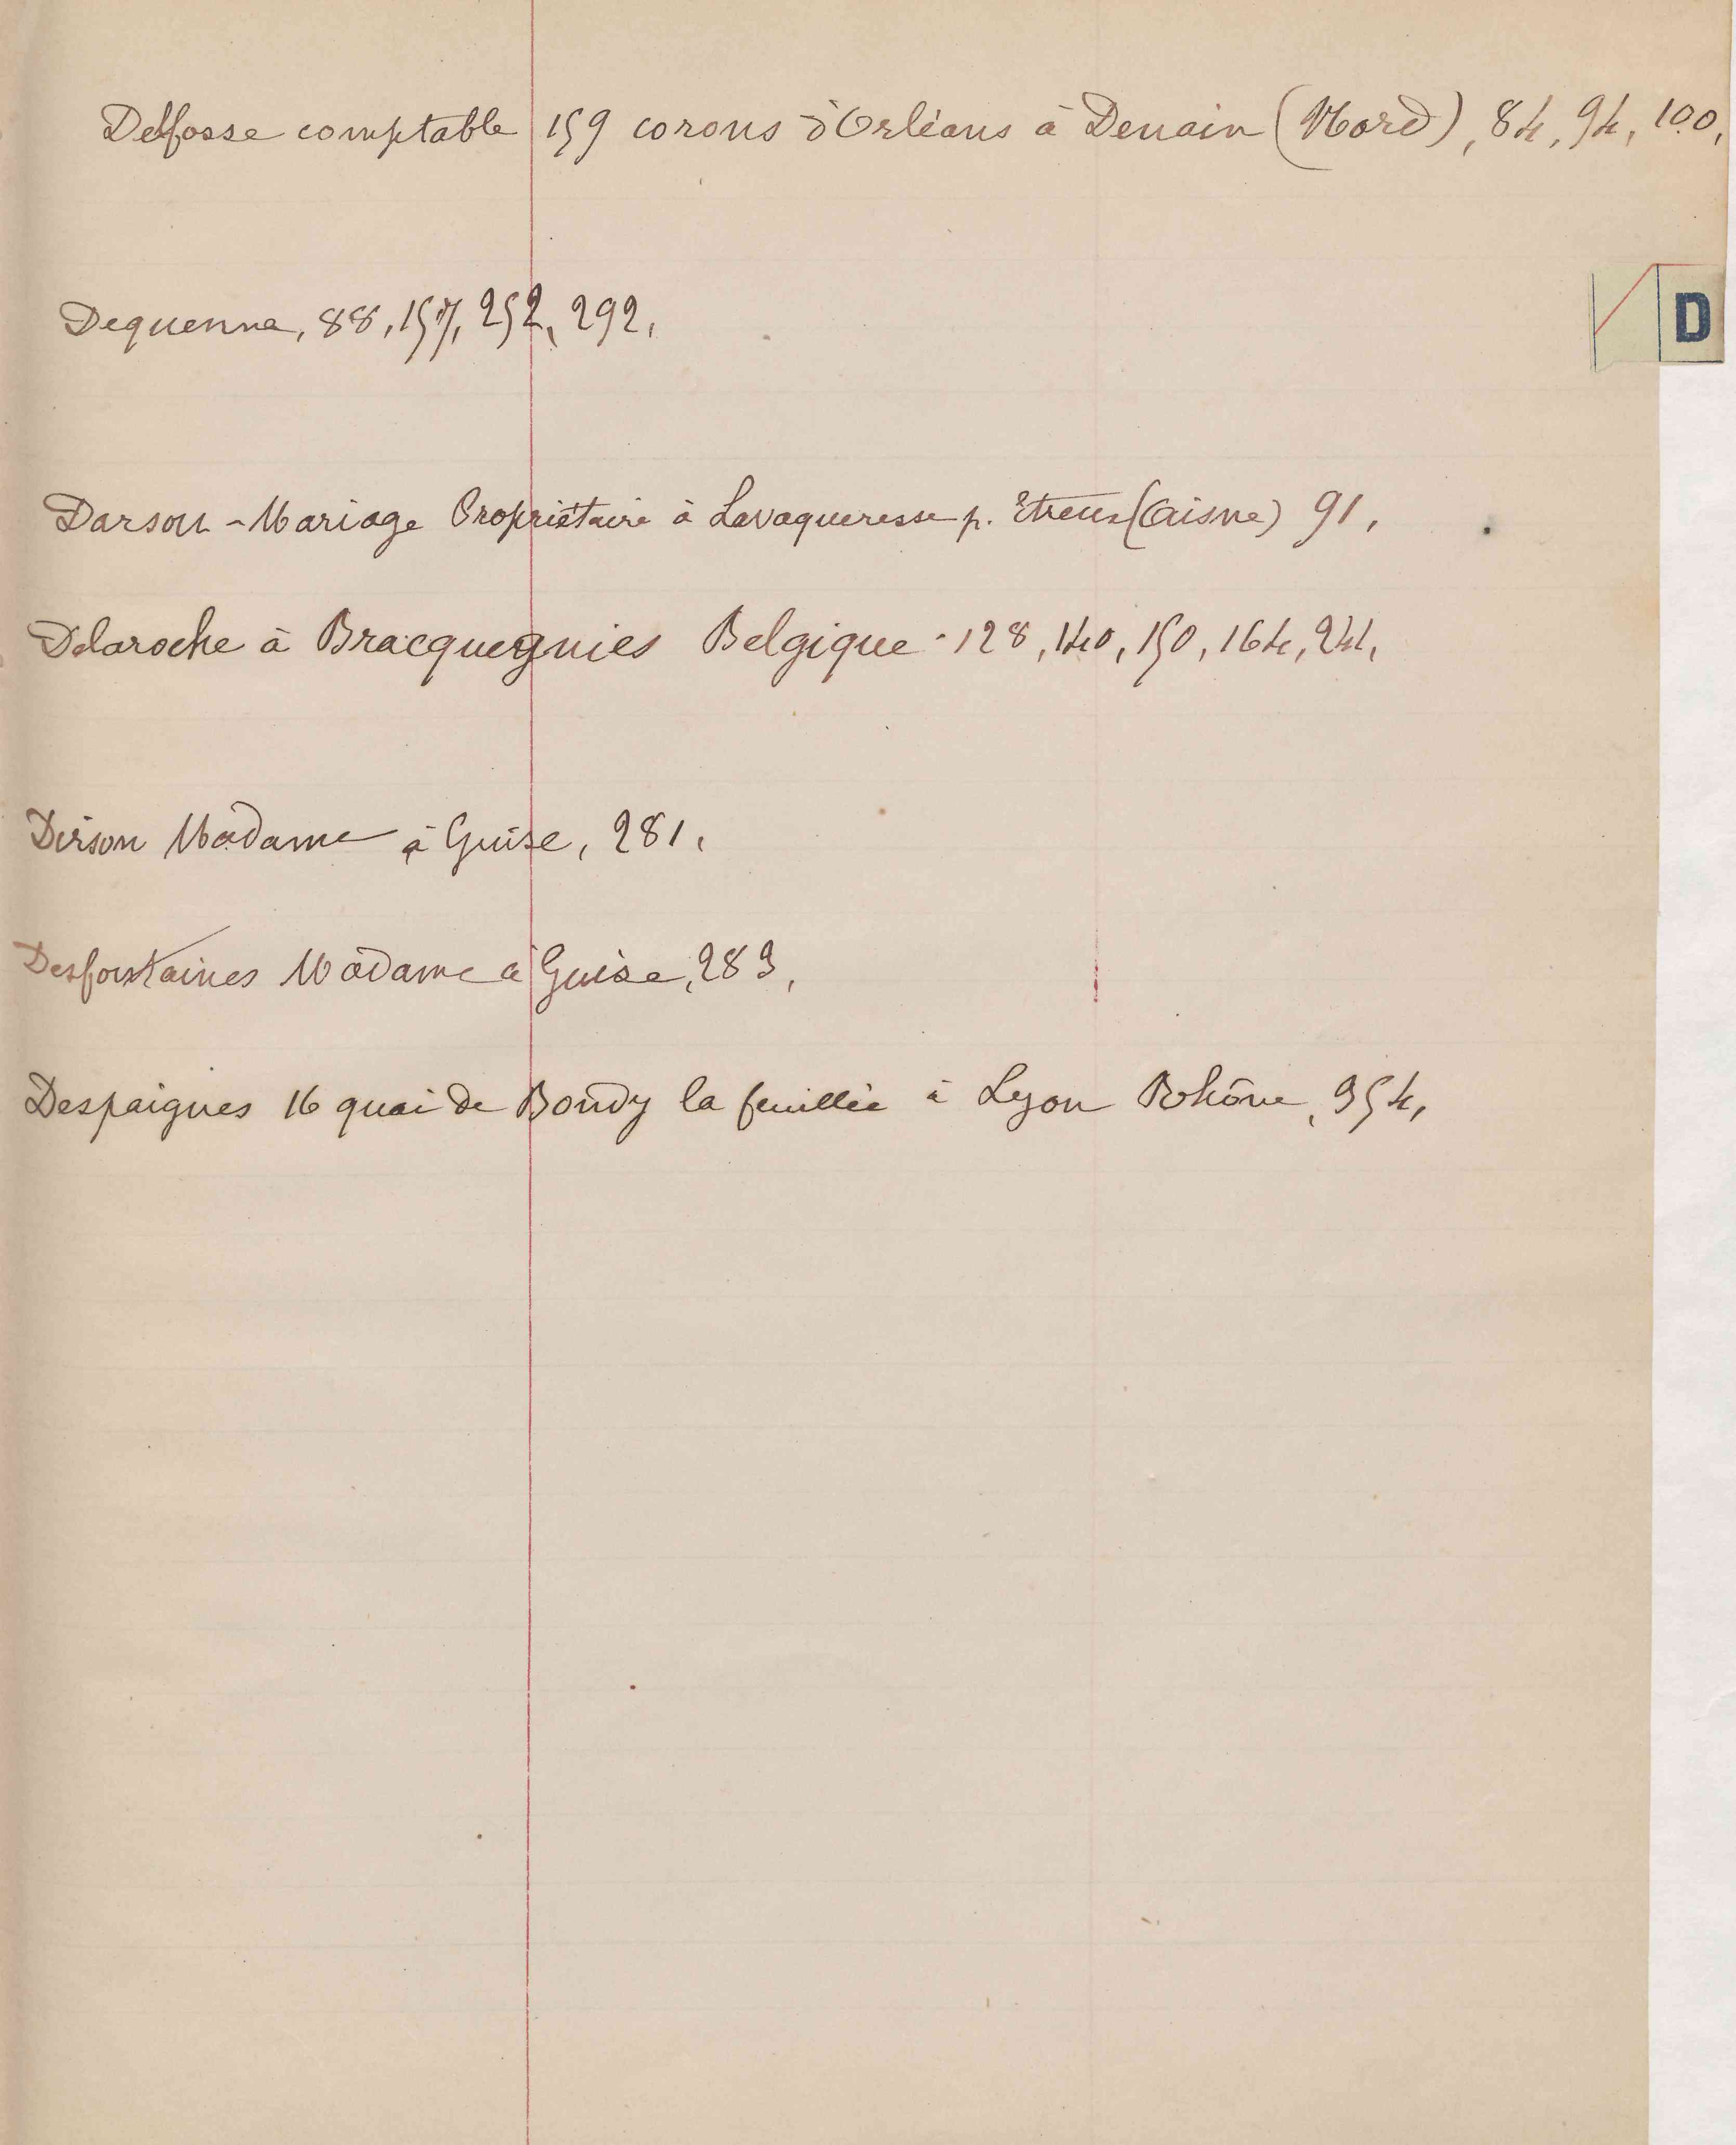 Delfosse comptable 159 corons d'Orléans à Denain (Nord), 84, 94, 100,
D
Dequenne, 88, 157, 252, 292,
Darson-Mariage Propriétaire à Lavaqueresse p. Etreux (Aisne) 91,
Delaroche à Bracquegnies Belgique - 128, 140, 150, 164, 241,
Dirson Madame à Guise, 281,
Desfontaines Madame à Guise, 283,
Despaignes 16 quai de Bondy la feuillée à Lyon Rhône, 354,